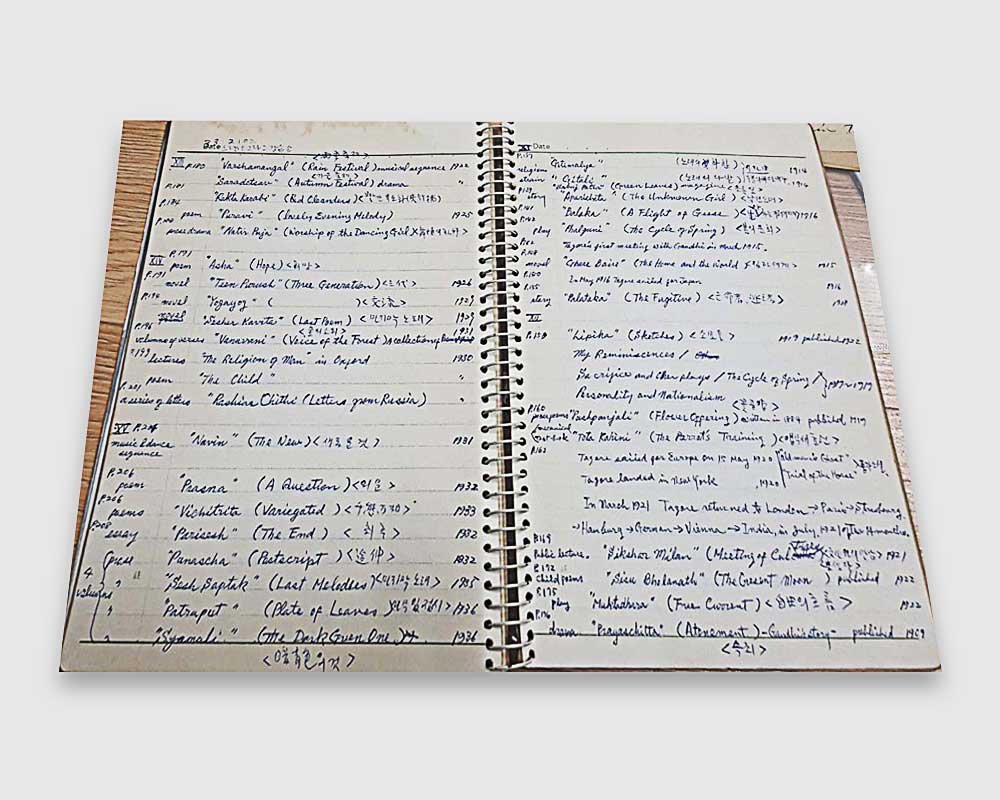 Date
XII P.180 "Varshamangal" (Rain Festival) musical sequence 1922
P.181 "Saradotsav" (Autumn Festival) drama "
P.184 "Rakta Karabi" (Red Oleanders)
poem "Puravi" (lovely Evening Melody) 1925
prose drama "Natir Puja" (Worship of the Dancing Girl)
P.191
XIV poem "Asha" (Hope) <희망>
P.191 novel "Teen Purush" (Three Generation) <三代> 1926
P.194 novel "Yogayog" ( ) 1929
novel "Sesher Kavita" (Last Poem) <마지막 노래> 1929
P.196 1931
volumes of verses "Vanavani" (Voice of the Forest) a collection of
P.199 lectures "The Religion of Man" in Oxford 1930
poem "The Child" "
P.201
a series of letters "Rashiar Chithi" (Letters from Russia) "
XV P.204
music & dance sequence "Navin" (The New) <새로운 것> 1931
P.206 poem "Prasna" (A Question) <의문> 1932
P.206 poems "Vichitrita" (Variegated) 1933
P.208 essay "Parisesh" (The End) <최후> 1932
(prose "Punascha" (Postscript) <追伸> 1932
4 volumes " "Sesh Saptak" (Last Melodies) <마지막 노래> 1935
" "Patraput" (Plate of Leaves) 1936
" "Syamali" (The Dark Green One) 1936
<暗靑色의 것>
XI Date
P.137
religious strain "Gitimalya" 1914
"Gitali" 1914
P.139 "Sabuj Patra" (Green Leaves) magazine
story "Aparichita" (The Unknown Girl)
P.141 "Balaka" (A Flight of Geese) 1916
P.142 play "Phalguni" (The Cycle of Spring)
P.142 Tagore's first meeting with Gandhi in March 1915.
P.148
novel "Ghare Baire" (The Home and the world 1915
P.150
P.155 In May 1916 Tagore sailed for Japan 1916
story "Palataka" (The Fugitive) 1918
XII
P.158 "Lipika" (Sketches) <소묘> 1919 published 1922
My Reminiscences /
Sacrifice and Other plays / The Cycle of Spring / 1917~1919
Personality and Nationalism
P.160 <꽃공양>
prose poems "Pushpanjali" (Flower Offering) written in 1884 published 1919
"Tota Kahini" (The Parrot's Training)
P.162 Tagore sailed for Europe on 15 May 1920 "Old man's Ghost"
Tagore landed in New York , 1920 "Trial of The Horse"
In March 1921 Tagore returned to London → Paris → Strasbourg
→ Hamburg → German → Vienna → India, in July, 1921, after 14 months.
P.169
Public lecture. "Sikshar Milan" (Meeting of 1921
P.172
child poems "Sisu Bholanath" (The Cresent Moon) published 1922
P.175 play "Muktadhara" (Free Current) <自由의 흐름> 1922
P.176
drama "Prayaschitta" (Atonement) - Gandhi story - published 1909
<속죄>